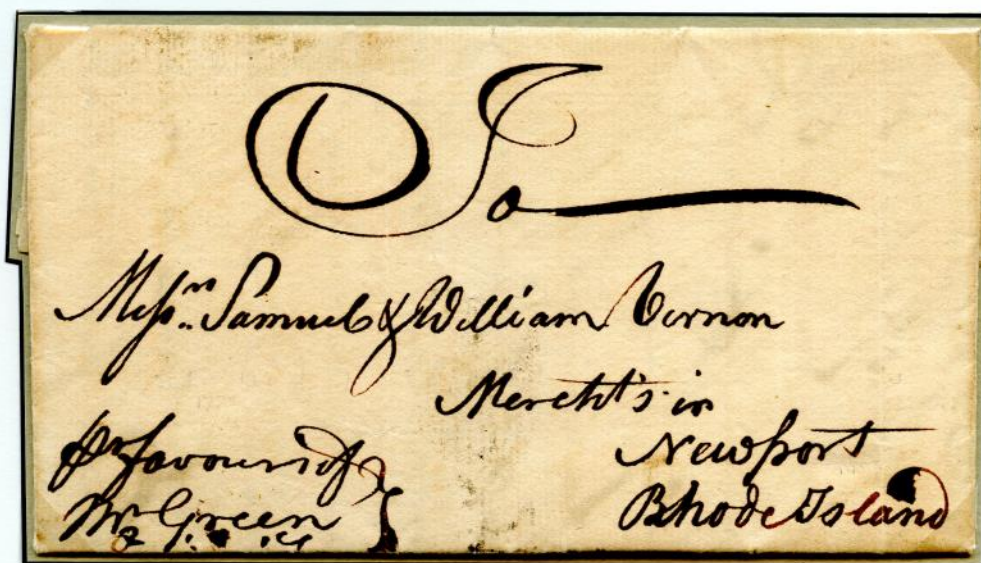 To
Messrs. Samuel & William Vernon
Mercht's in
Newport
Rhode Island
pr favour of
Mr Green